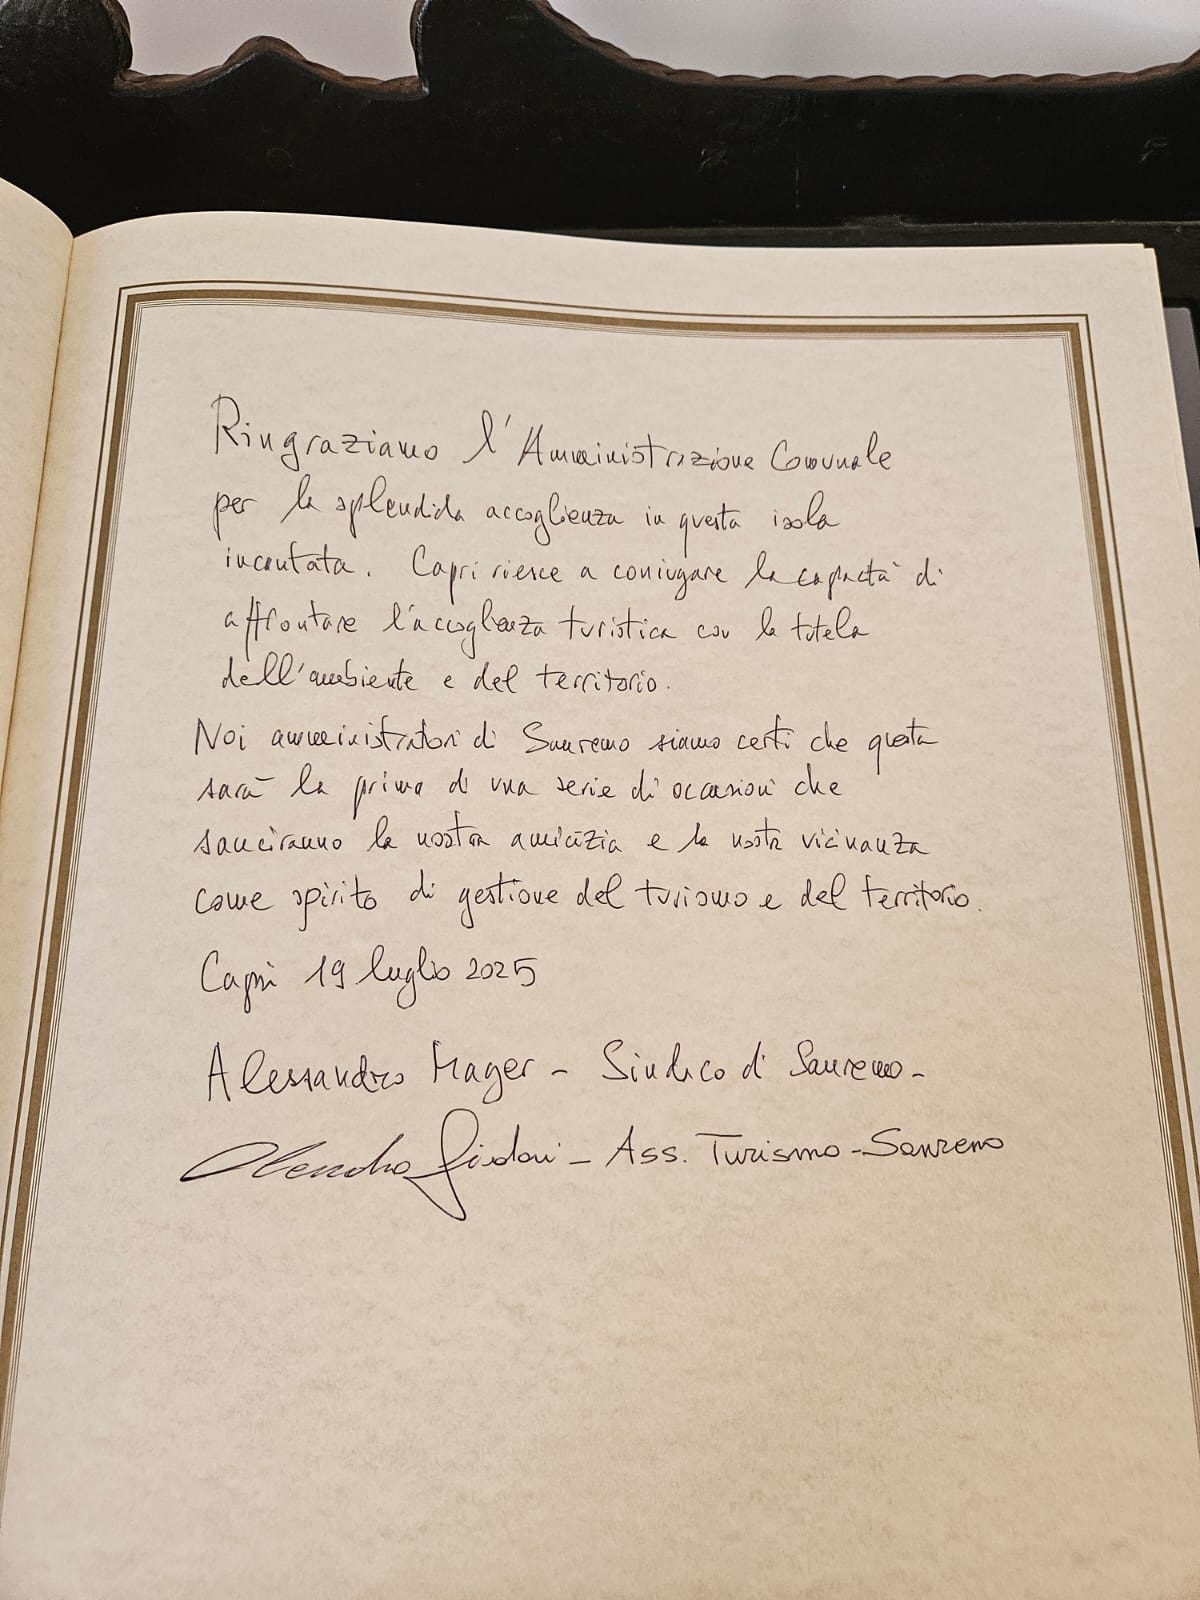 Ringraziamo l'Amministrazione Comunale
per la splendida accoglienza in questa isola
incantata. Capri riesce a coniugare la capacità di
affrontare l'accoglienza turistica con la tutela
dell'ambiente e del territorio.
Noi amministratori di Sanremo siamo certi che questa
sarà la prima di una serie di occasioni che
sanciranno la nostra amicizia e la nostra vicinanza
come spirito di gestione del turismo e del territorio.
Capri 19 luglio 2025
Alessandro Mager - Sindaco di Sanremo -
Alessandro - Ass. Turismo - Sanremo